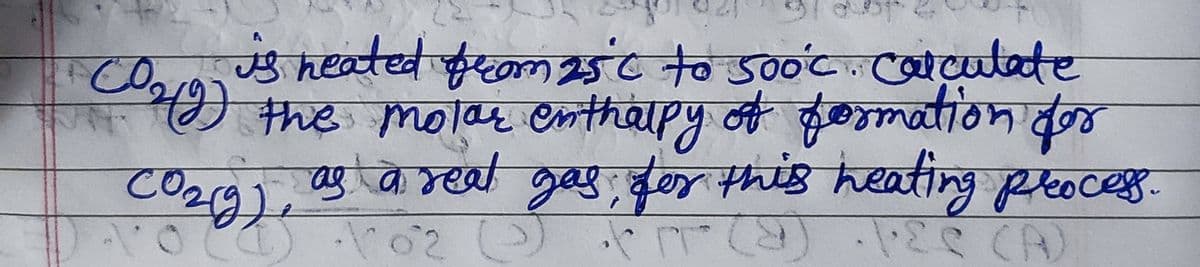 CO₂(g) is heated from 25°C to 500°C. Calculate
the molar enthalpy of formation for
CO₂(g), as a real gas, for this heating process.